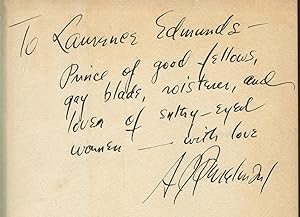 To Laurence Edmunds —
Prince of good fellows,
gay blade, roisterer, and
lover of sultry-eyed
women — with love